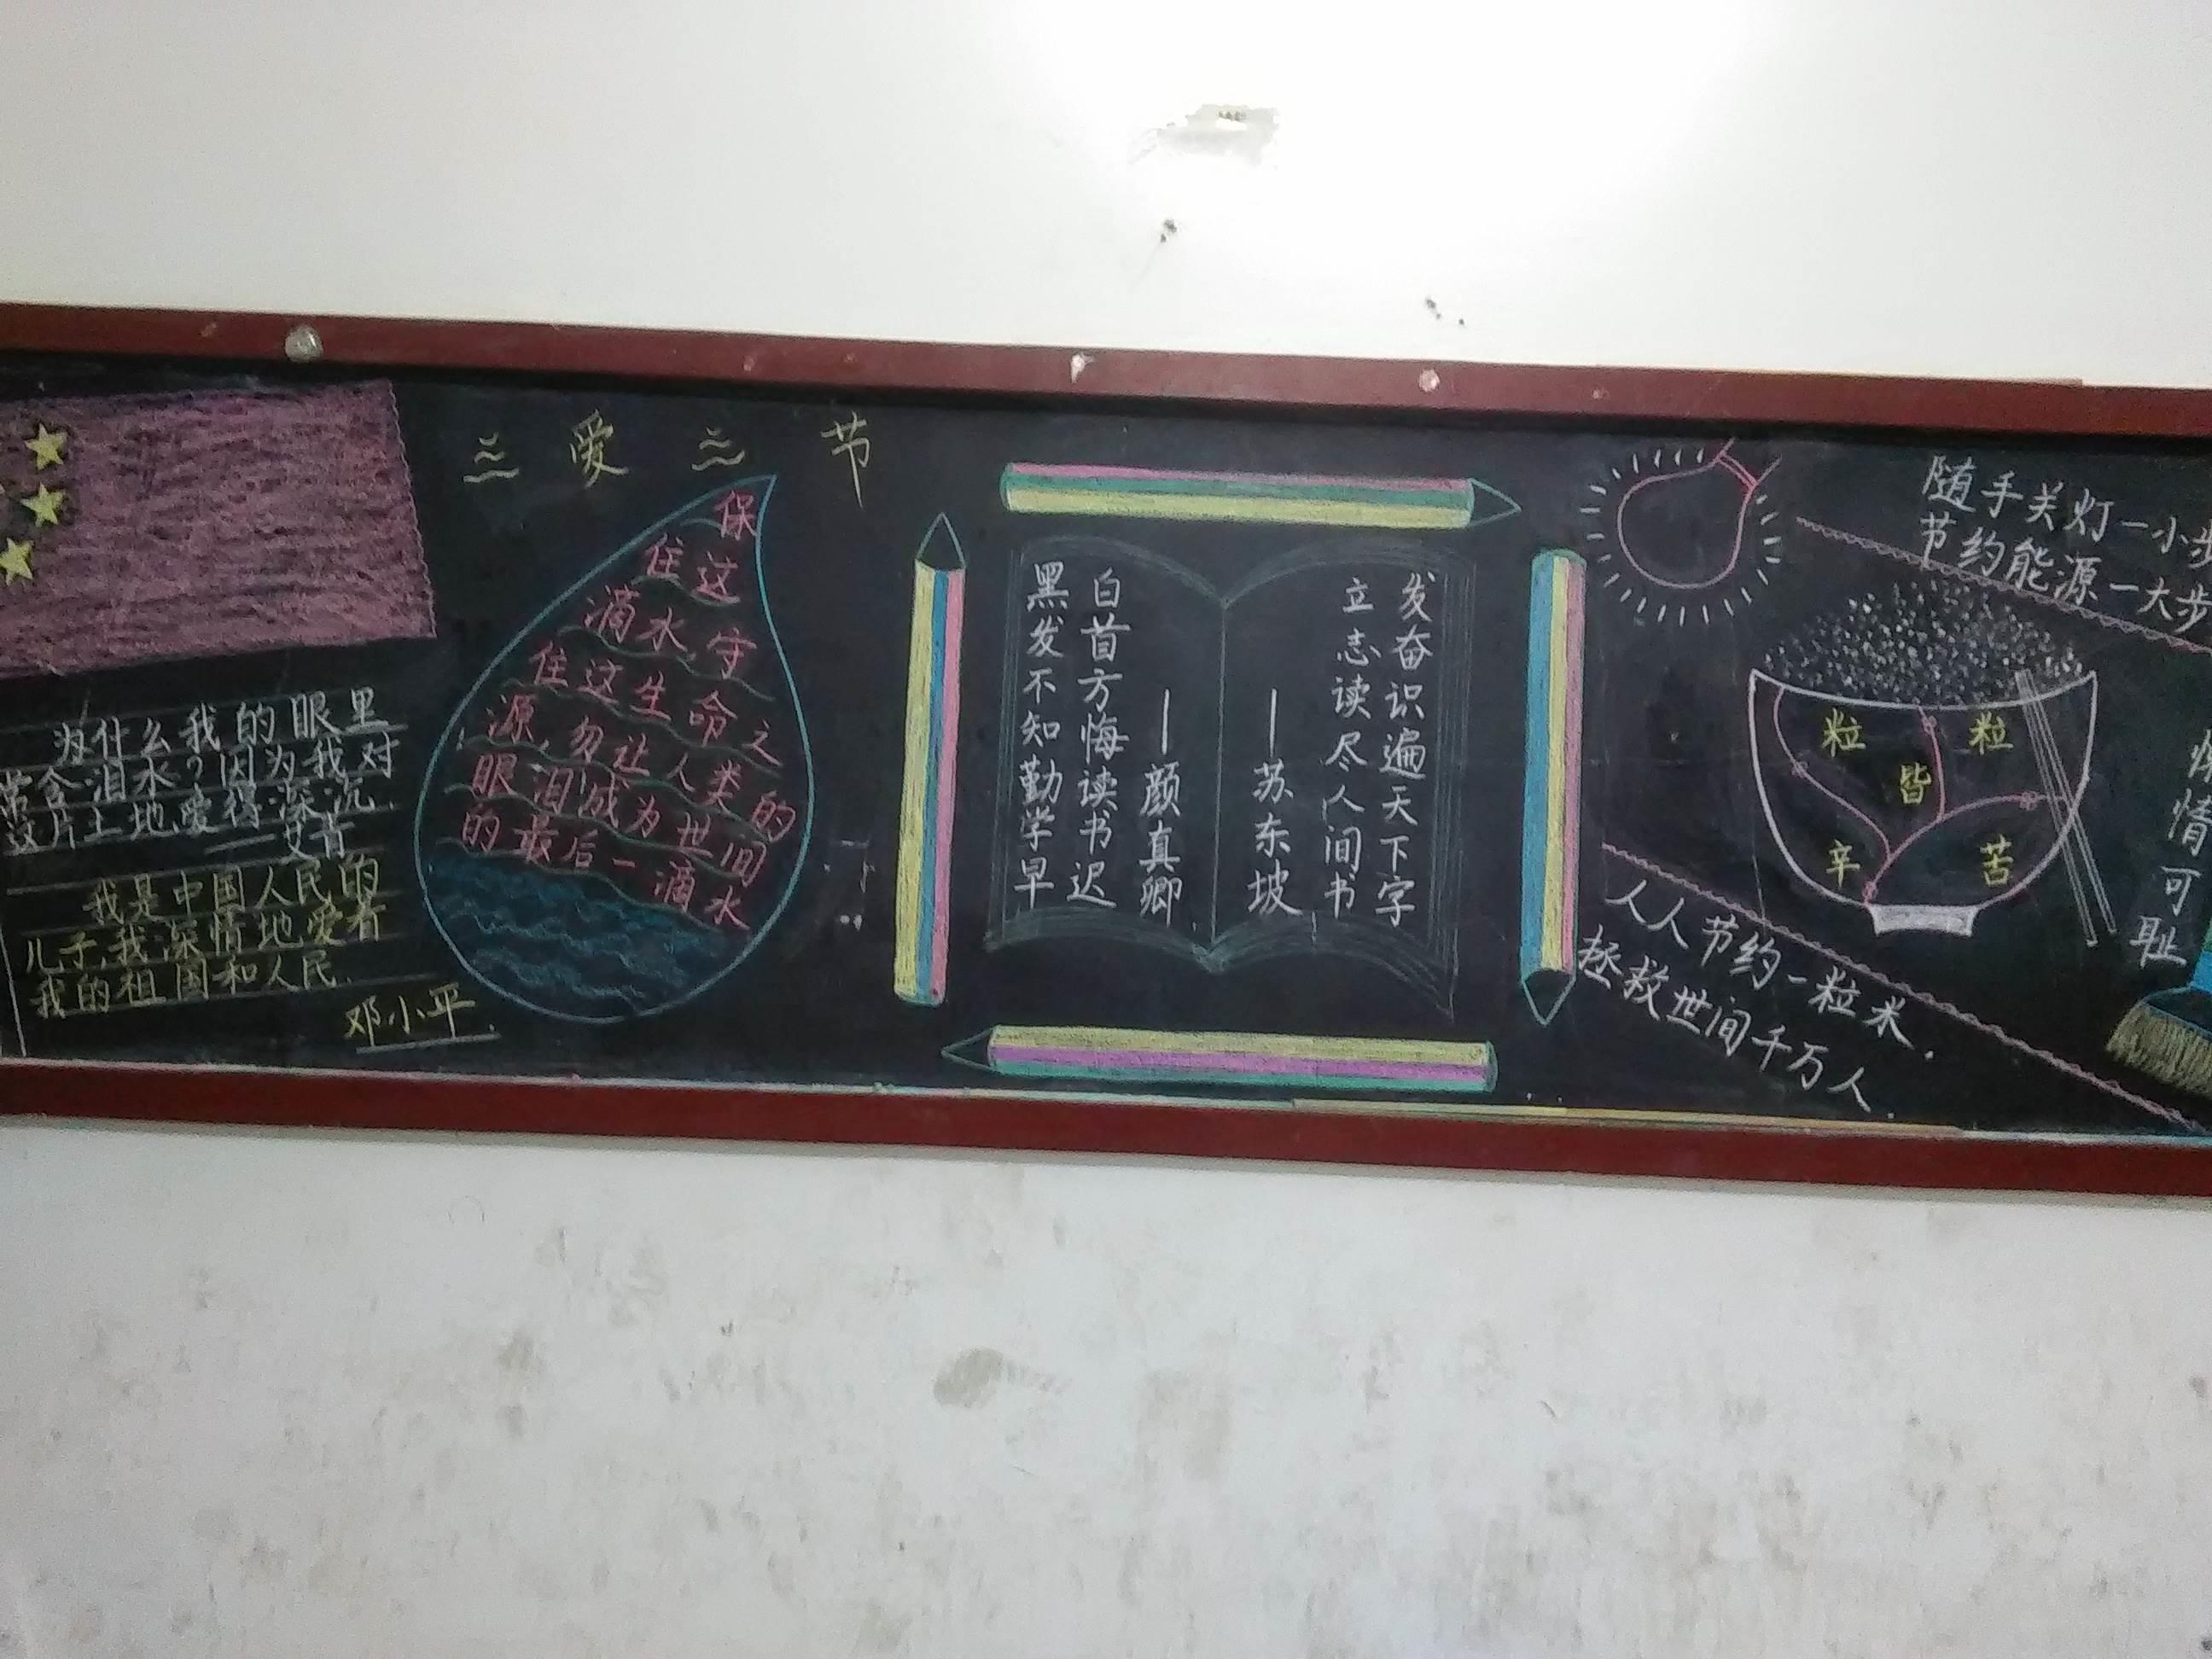 三爱三节
为什么我的眼里
常含泪水?因为我对
这片土地爱得深沉.
——艾青
我是中国人民的
儿子,我深情地爱着
我的祖国和人民.
邓小平.
保
住这
滴水,守
住这生命之
源,勿让人类的
眼泪成为世间
的最后一滴水
发奋识遍天下字
立志读尽人间书
—苏东坡
白首方悔读书迟
黑发不知勤学早
—颜真卿
随手关灯一小步
节约能源一大步
粒粒
皆
辛苦
人人节约一粒米.
拯救世间千万人.
情可耻